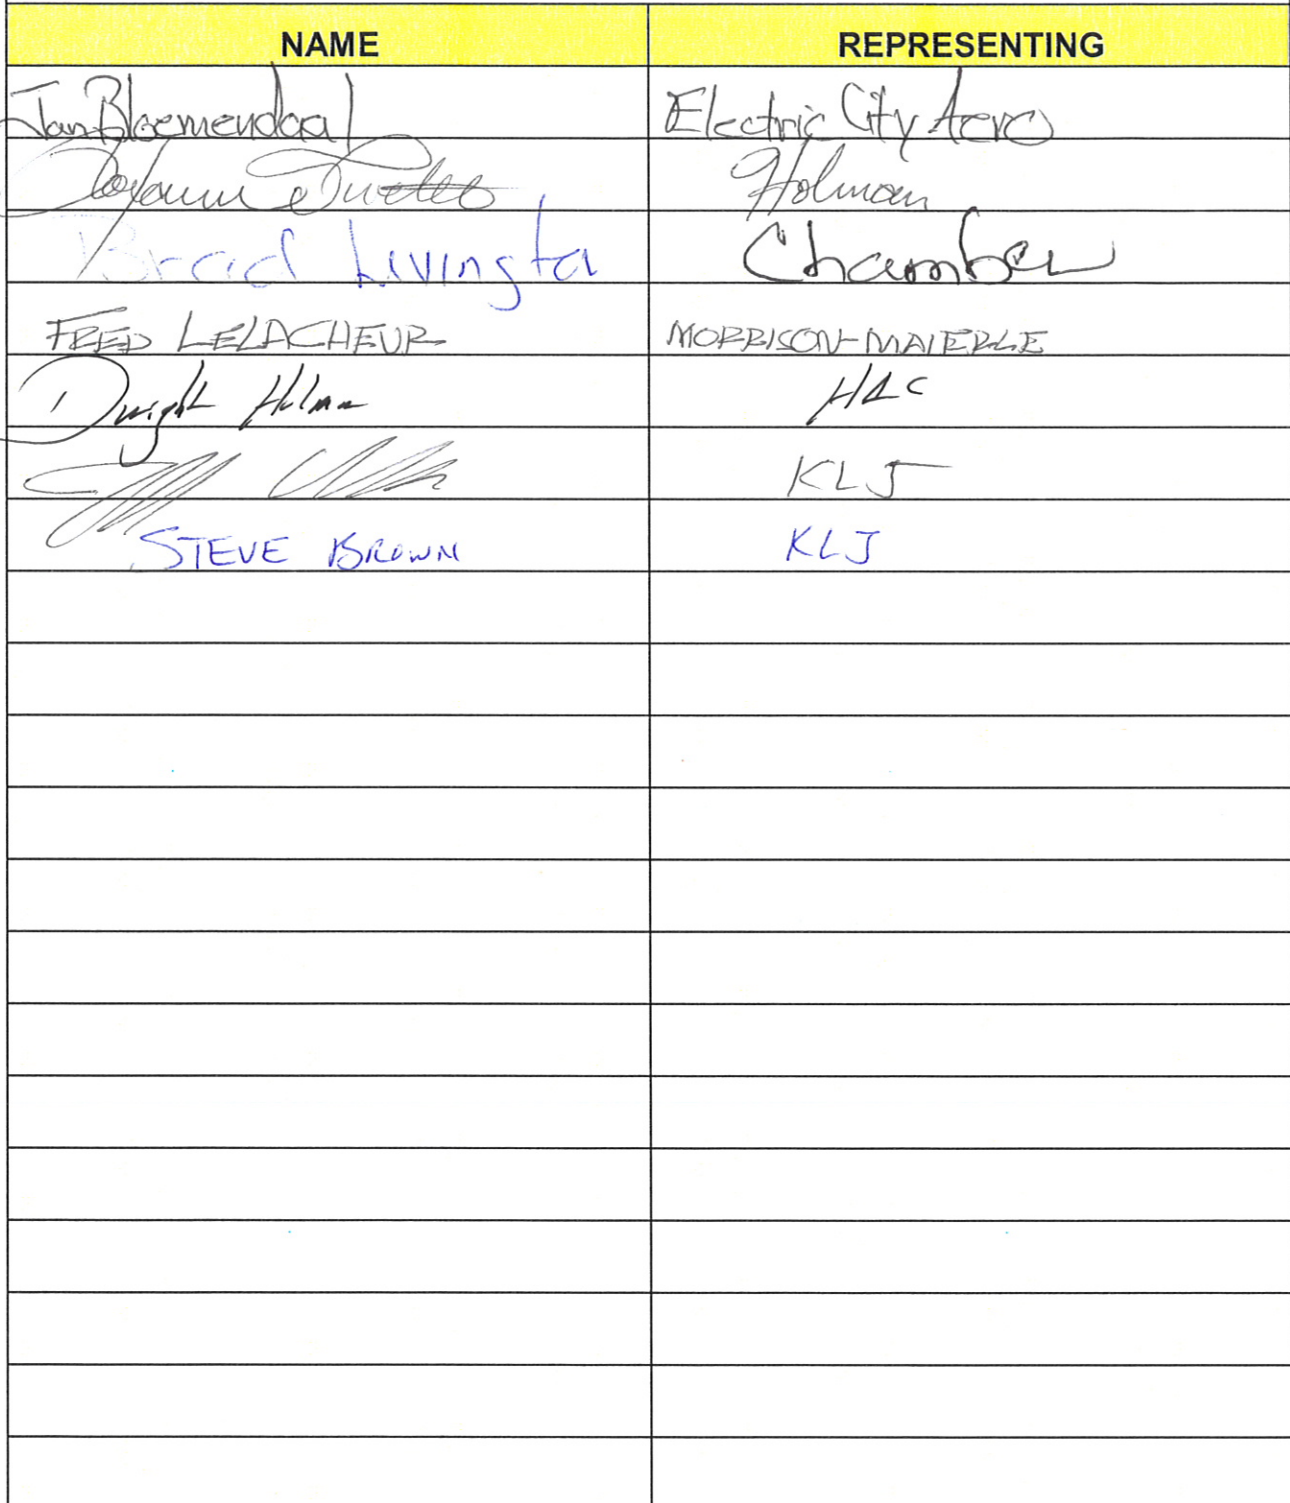 NAME REPRESENTING
Jan Bloemendaal Electric City Aero
Holman
Brad Livingston Chamber
FRED LELACHEUR MORRISON-MAIERLE
Dwight Holman HAC
KLJ
STEVE BROWN KLJ